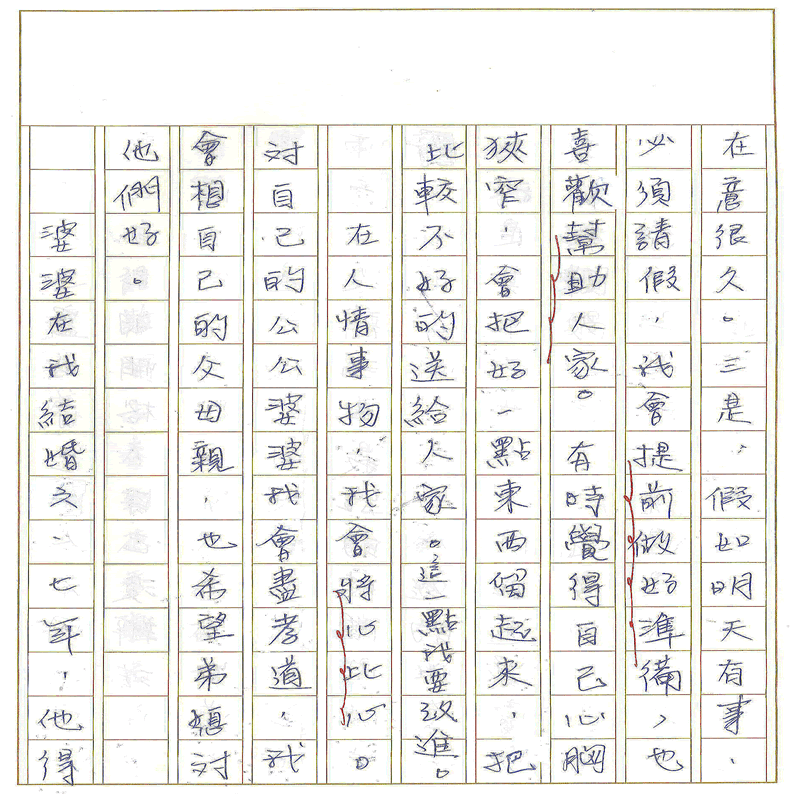 在意很久。三是，假如明天有事，
必須請假，我會提前做好準備，也
喜歡幫助人家。有時覺得自己心胸
狹窄，會把好一點東西留起來，把
比較不好的送給人家。這一點我要改進。
在人情事物，我會將心比心。
對自己的公公婆婆我會盡孝道，我
會想自己的父母親，也希望弟媳對
他們好。
婆婆在我結婚六、七年，他得